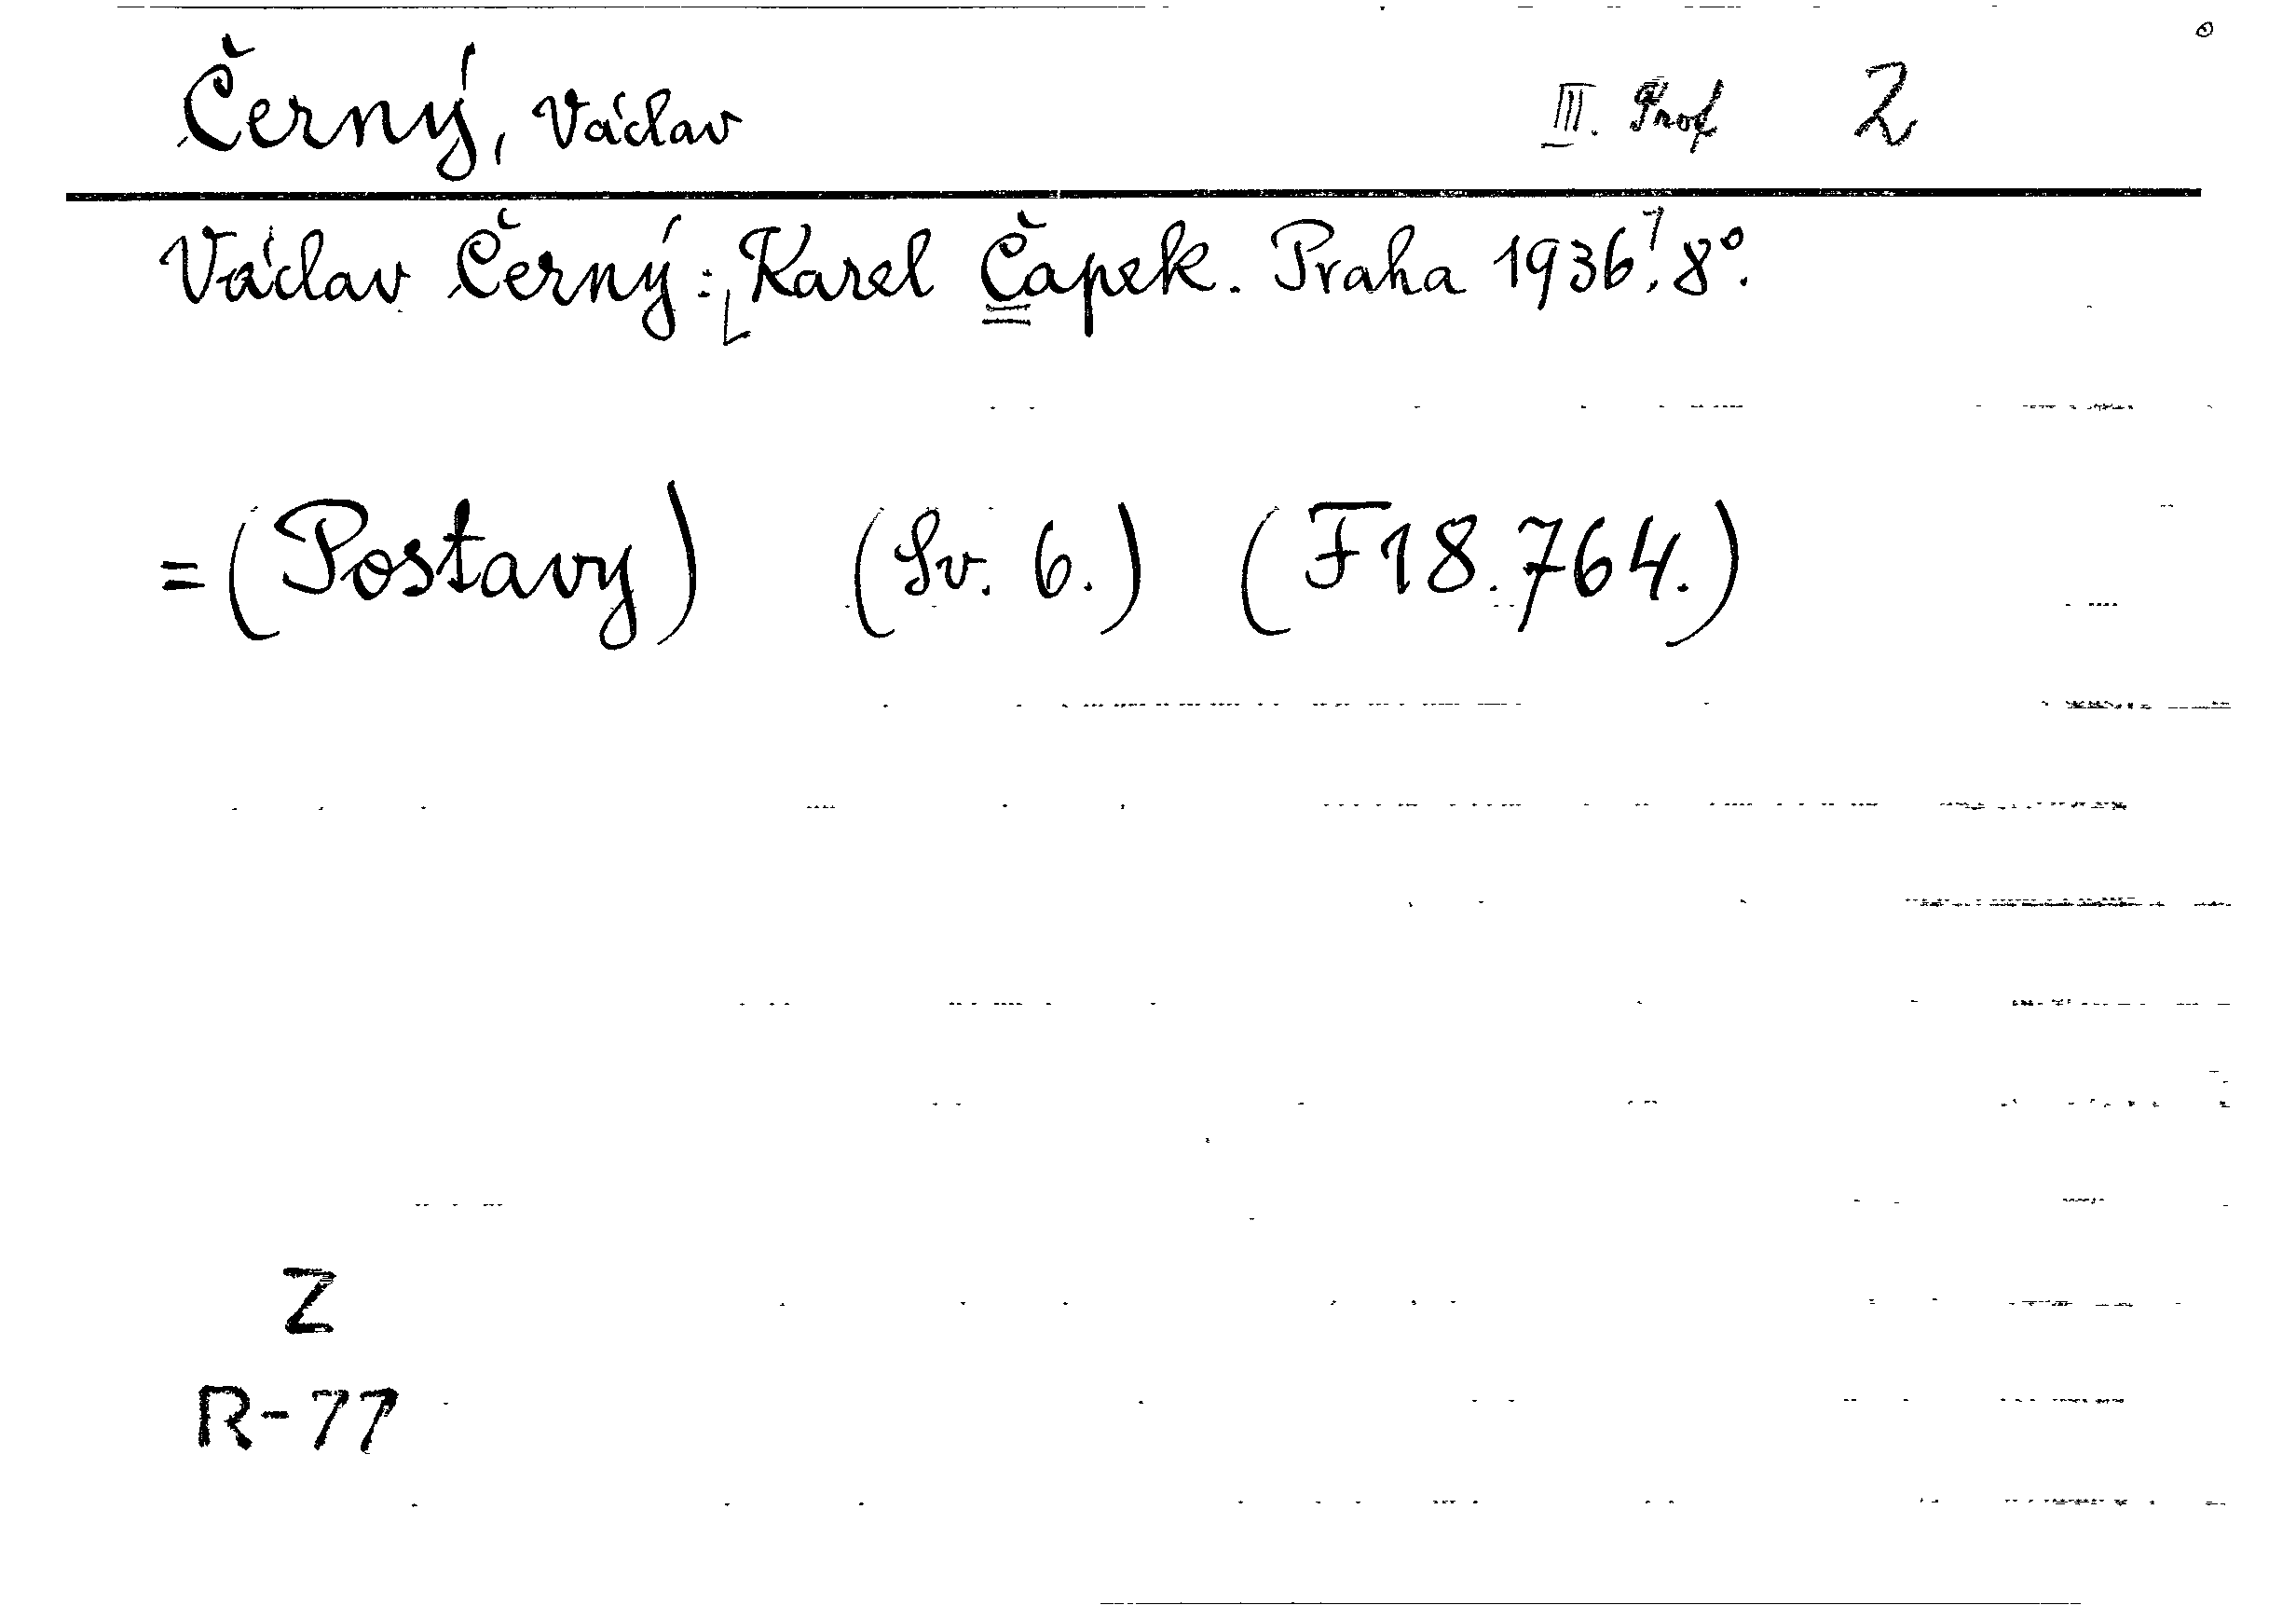 Černý, Václav III. Prof 2
Václav Černý: Karel Čapek. Praha 1936. 8°.
=(Postavy) (Sv. 6.) (F18.764.)
Z
R-77